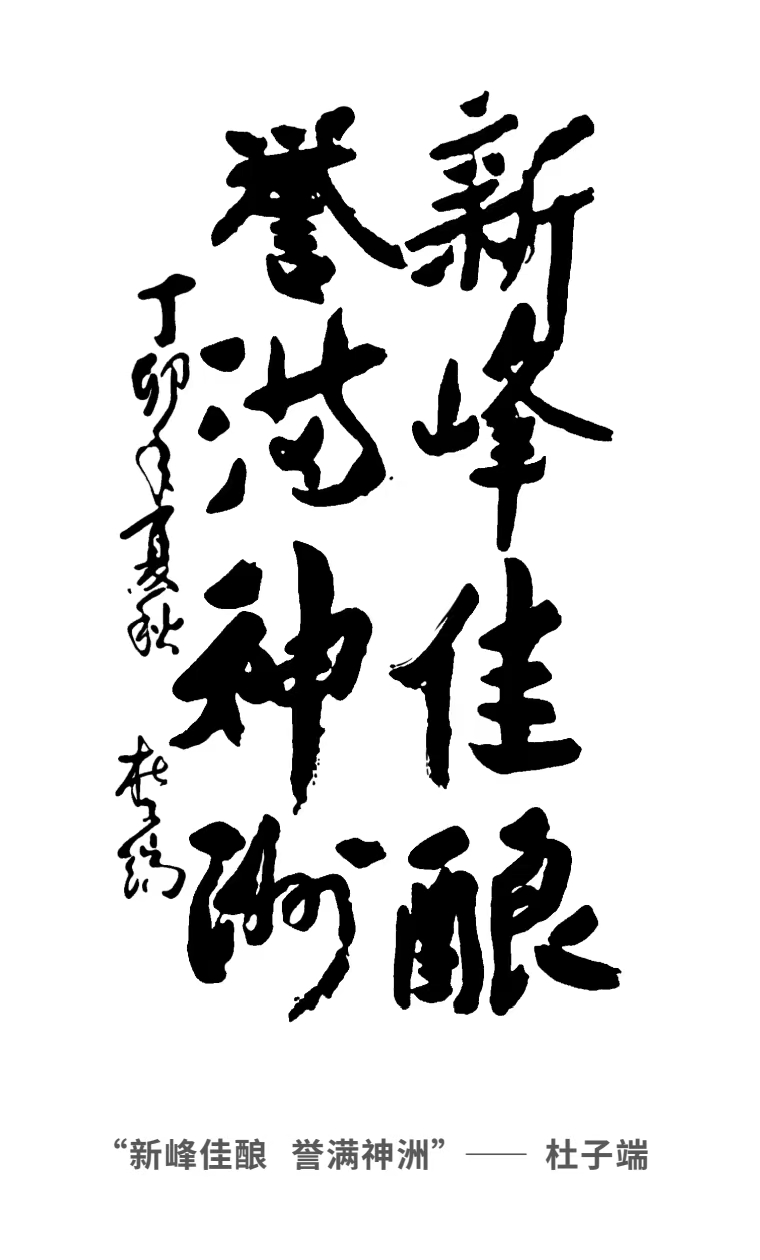 新峰佳酿
誉满神洲
丁卯年夏秋 杜子端
“新峰佳酿 誉满神洲”—— 杜子端